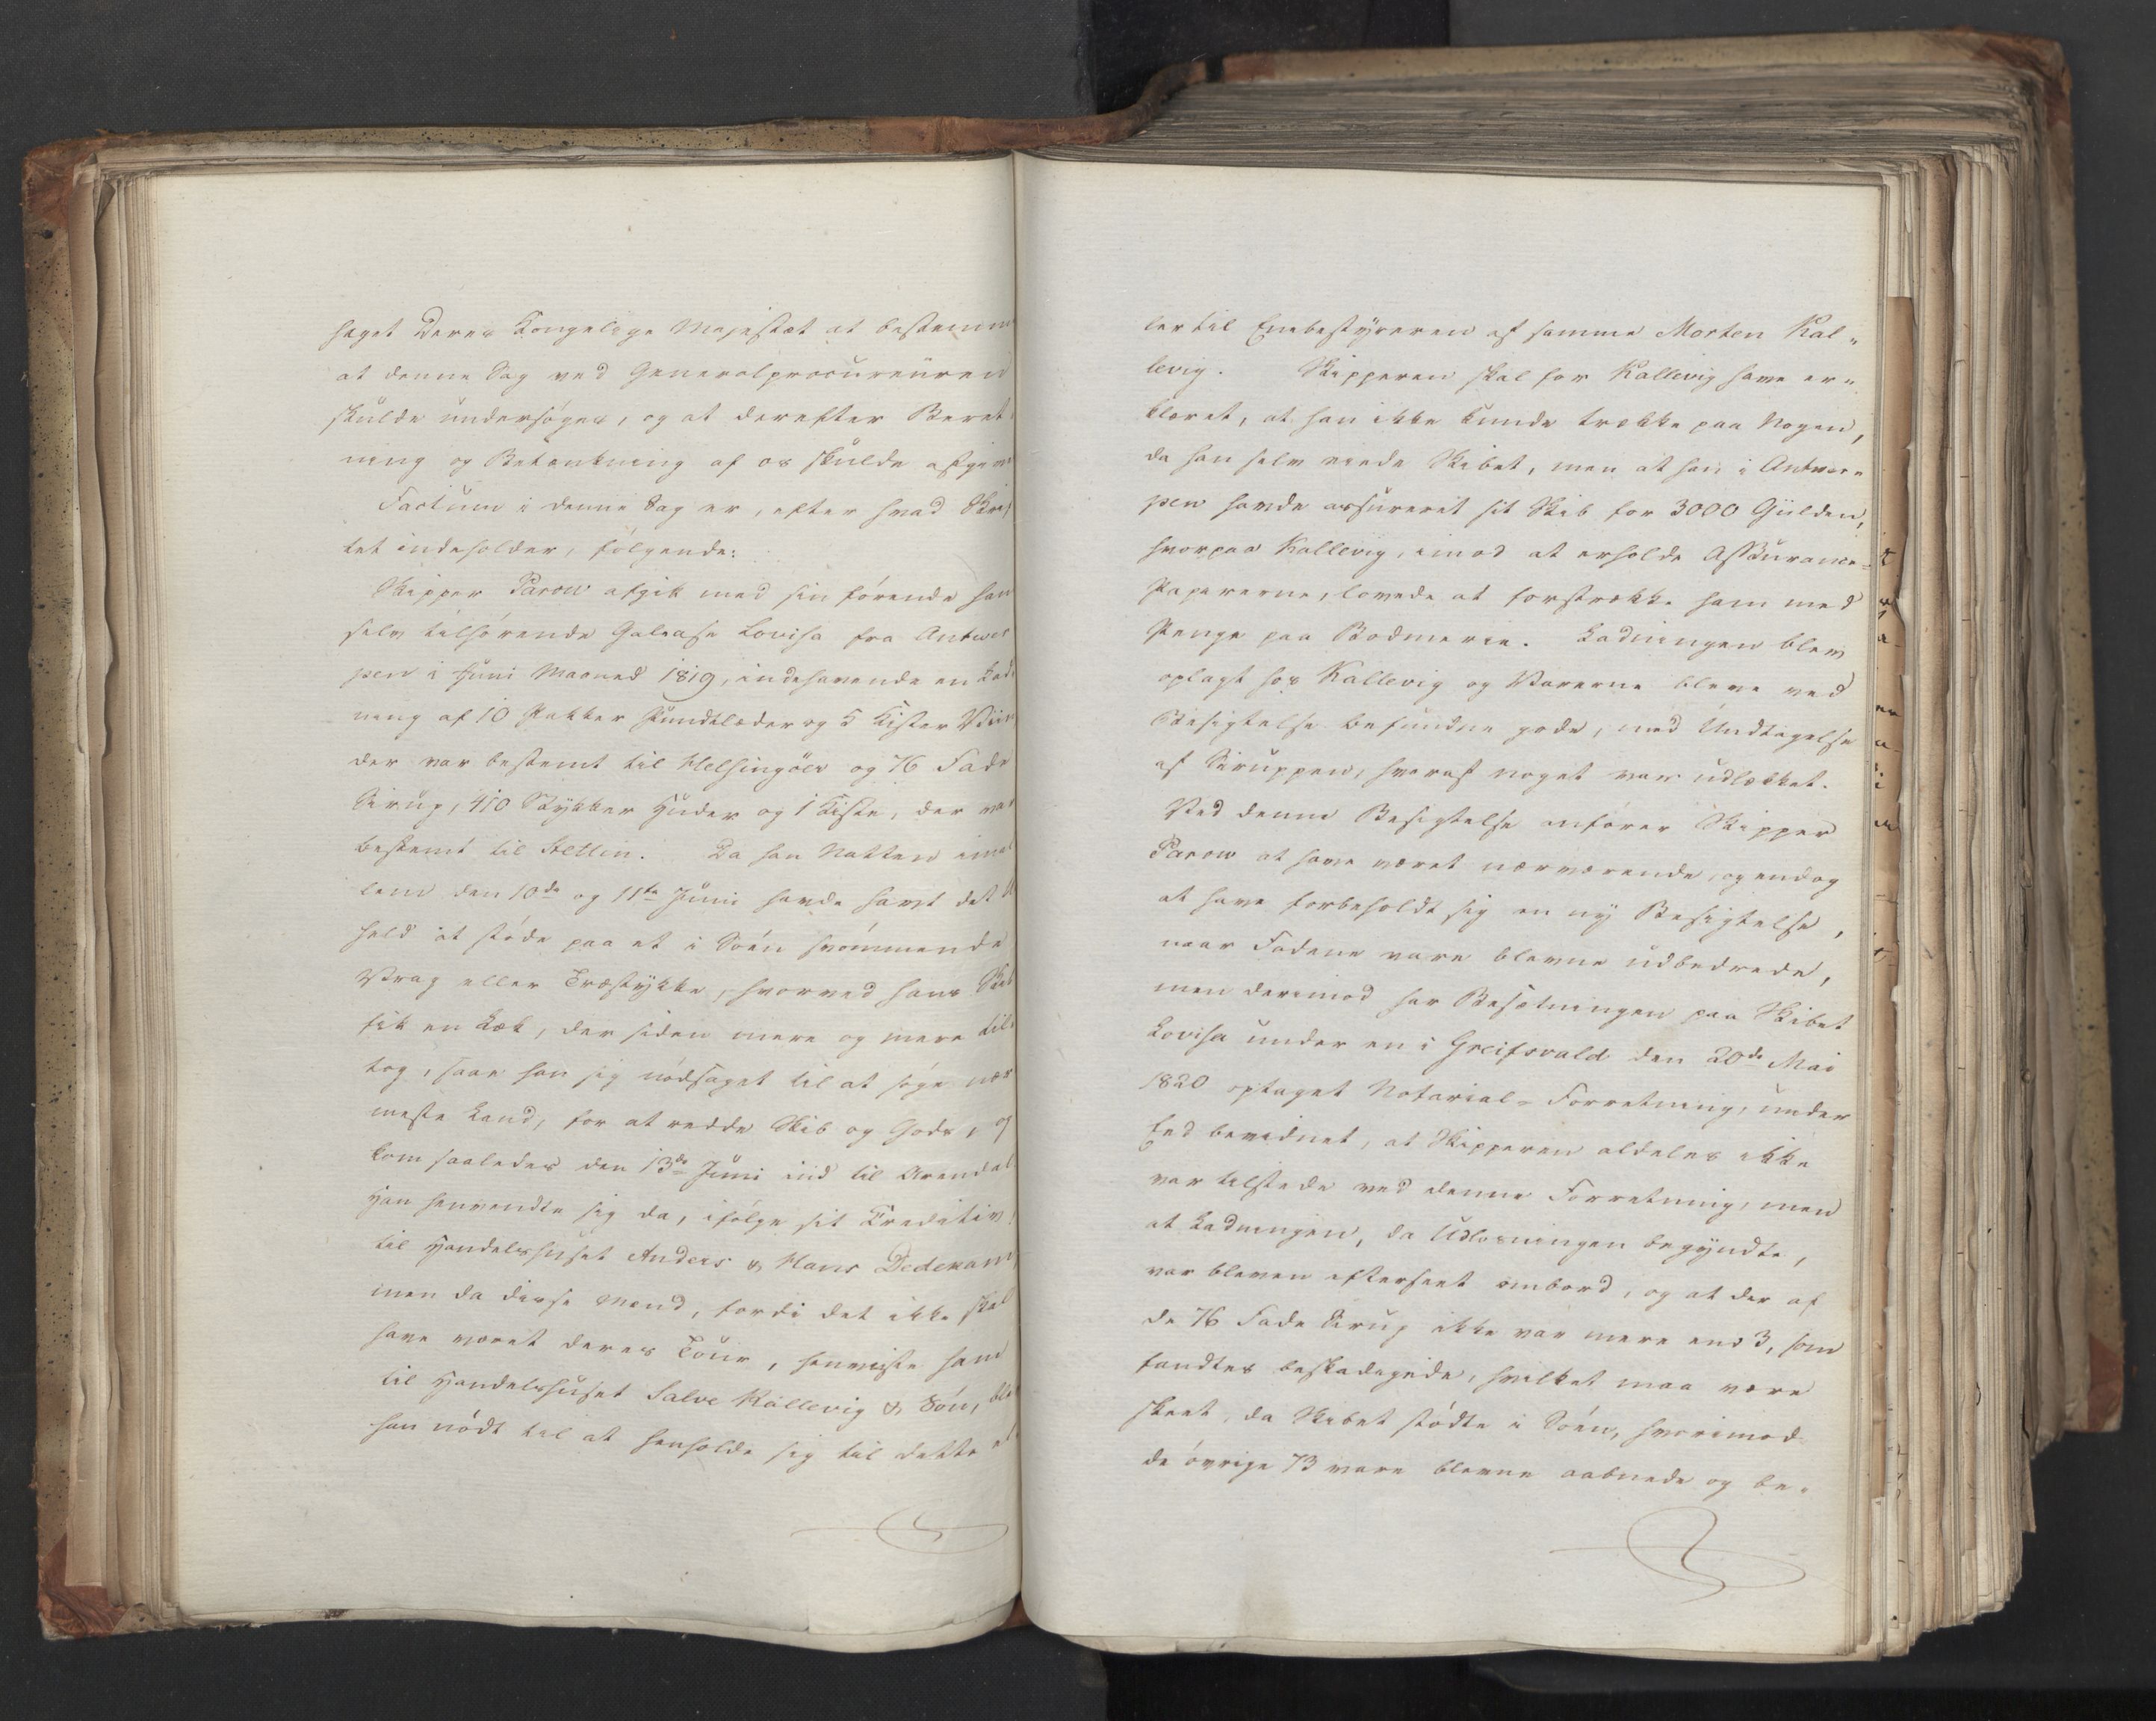 haget Deres Kongelige Majestæt at bestemme
at denne Sag ved Generalprocureuren
skulde undersøges, og at derefter Beret,
ning og Betænkning af os skulde afgives
Factum i denne Sag er, efter hvad Skrif
tet indeholder, følgende:
Skipper Parow afgik med sin førende ham
selv tilhørende Galease Lovisa fra Antwer
pen i Juni Maaned 1819, indehavende en Lad,
ning af 10 Pakker Pundlæder og 5 Kister Viin
der var bestemt til Helsingöer og 76 Fade
Sirup, 410 Stykker Huder og 1 Kiste, der var
bestemt til Stettin. Da han Natten imel
lem den 10de og 11te Juni havde havt det U
held at støde paa et i Søen svømmende
Vrag eller Træstykke, hvorved hans Skib
fik en Læk, der siden mere og mere til,
tog, saae han sig nødsaget til at søge nær
meste Land, for at redde Skib og Gods, og
kom saaledes den 13de Juni ind til Arendal
Han henvendte sig da, ifølge sit Creditiv,
til Handelshuset Anders & Hans Dedekam,
men da disse Mænd, fordi det ikke skal
have været deres Tour, henviste ham
til Handelshuset Salve Kallevig & Søn, blev
han nødt til at henholde sig til dette el
ler til Enebestyreren af samme Morten Kal„
levig. Skipperen skal for Kallevig have er„
klæret, at han ikke kunde trække paa Nogen,
da han selv eiede Skibet, men at han i Antver„
pen havde assureret sit Skib for 3000 Gylden,
hvorpaa Kallevig, imod at erholde Assurance=
Papirerne, lovede at forstrække ham med
Penge paa Bodmerie. Ladningen blev
oplagt hos Kallevig og Varerne bleve ved
Besigtelse befundne gode, med Undtagelse
af Siruppen, hvoraf noget var udlækket.
Ved denne Besigtelse anfører Skipper
Parow at have været nærværende, og endog
at have forbeholdt sig en ny Besigtelse,
naar Fadene vare blevne udbedrede,
men derimod har Besætningen paa Skibet
Lovisa under en i Greifsvald den 20de Mai
1820 optaget Notarial=Forretning, under
Eed bevidnet, at Skipperen aldeles ikke
var tilstede ved denne Forretning, men
at Ladningen, da Udlosningen begyndte,
var bleven efterseet ombord, og at der af
de 76 Fade Sirup ikke var mere end 3, som
fandtes beskadigede, hvilket maa være
skeet, da Skibet stødte i Søen, hvorimod
de øvrige 73 vare blevne aabnede og be„